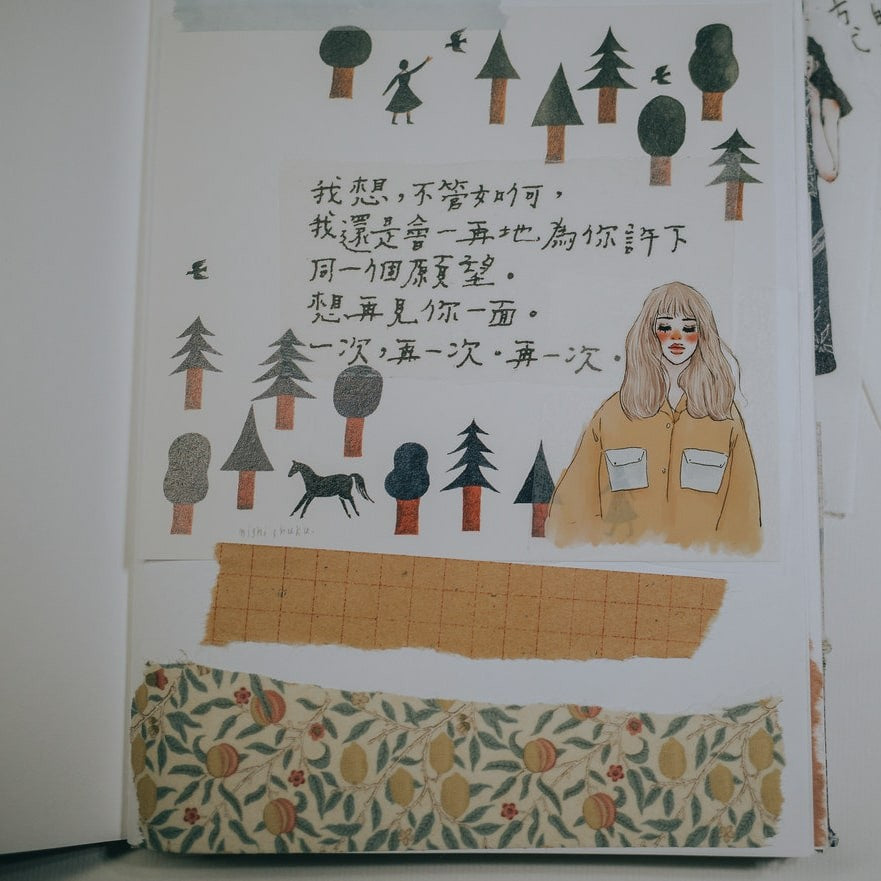 我想，不管如何，
我還是會一再地為你許下
同一個願望。
想再見你一面。
一次，再一次。再一次。
nishi shuku.